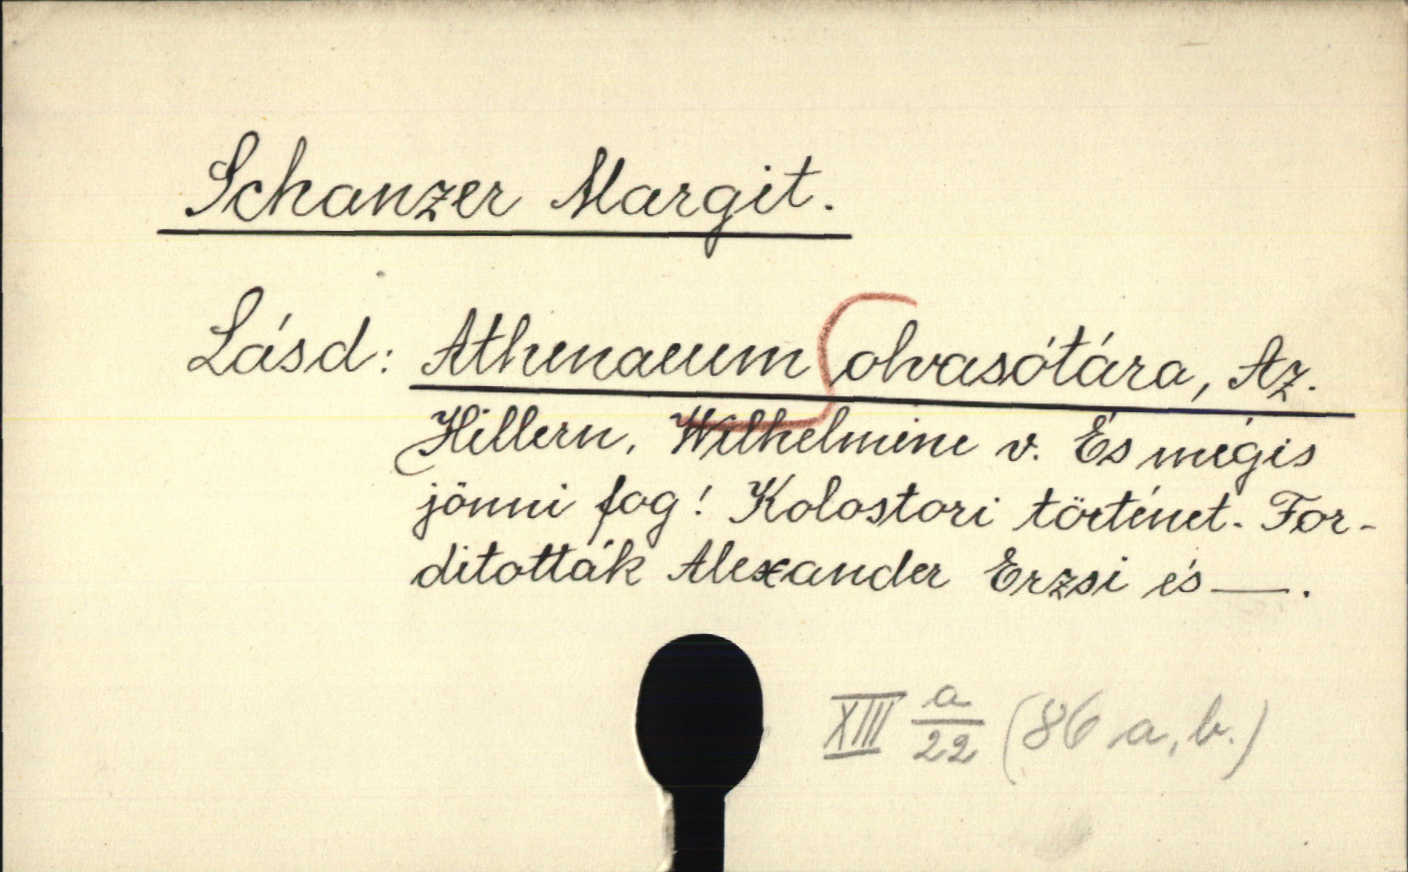 Schanzer Margit.
Lásd: Athenaeum olvasótára, Az.
Hillern, Wilhelmine v. És mégis
jönni fog! Kolostori történet. For-
dították Alexander Erzsi és —.
XIII a/22 (86 a, b.)